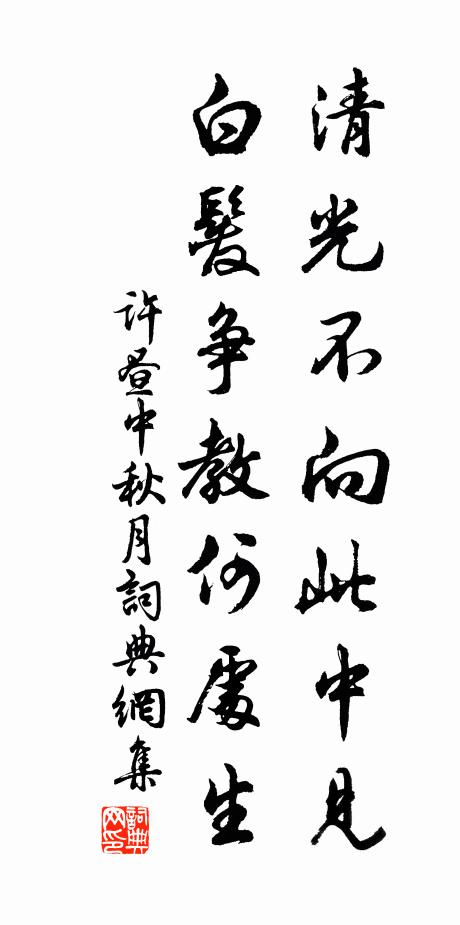 清光不向此中見
白髮争教何處生
許晝中秋月詞典網集
詞典网印